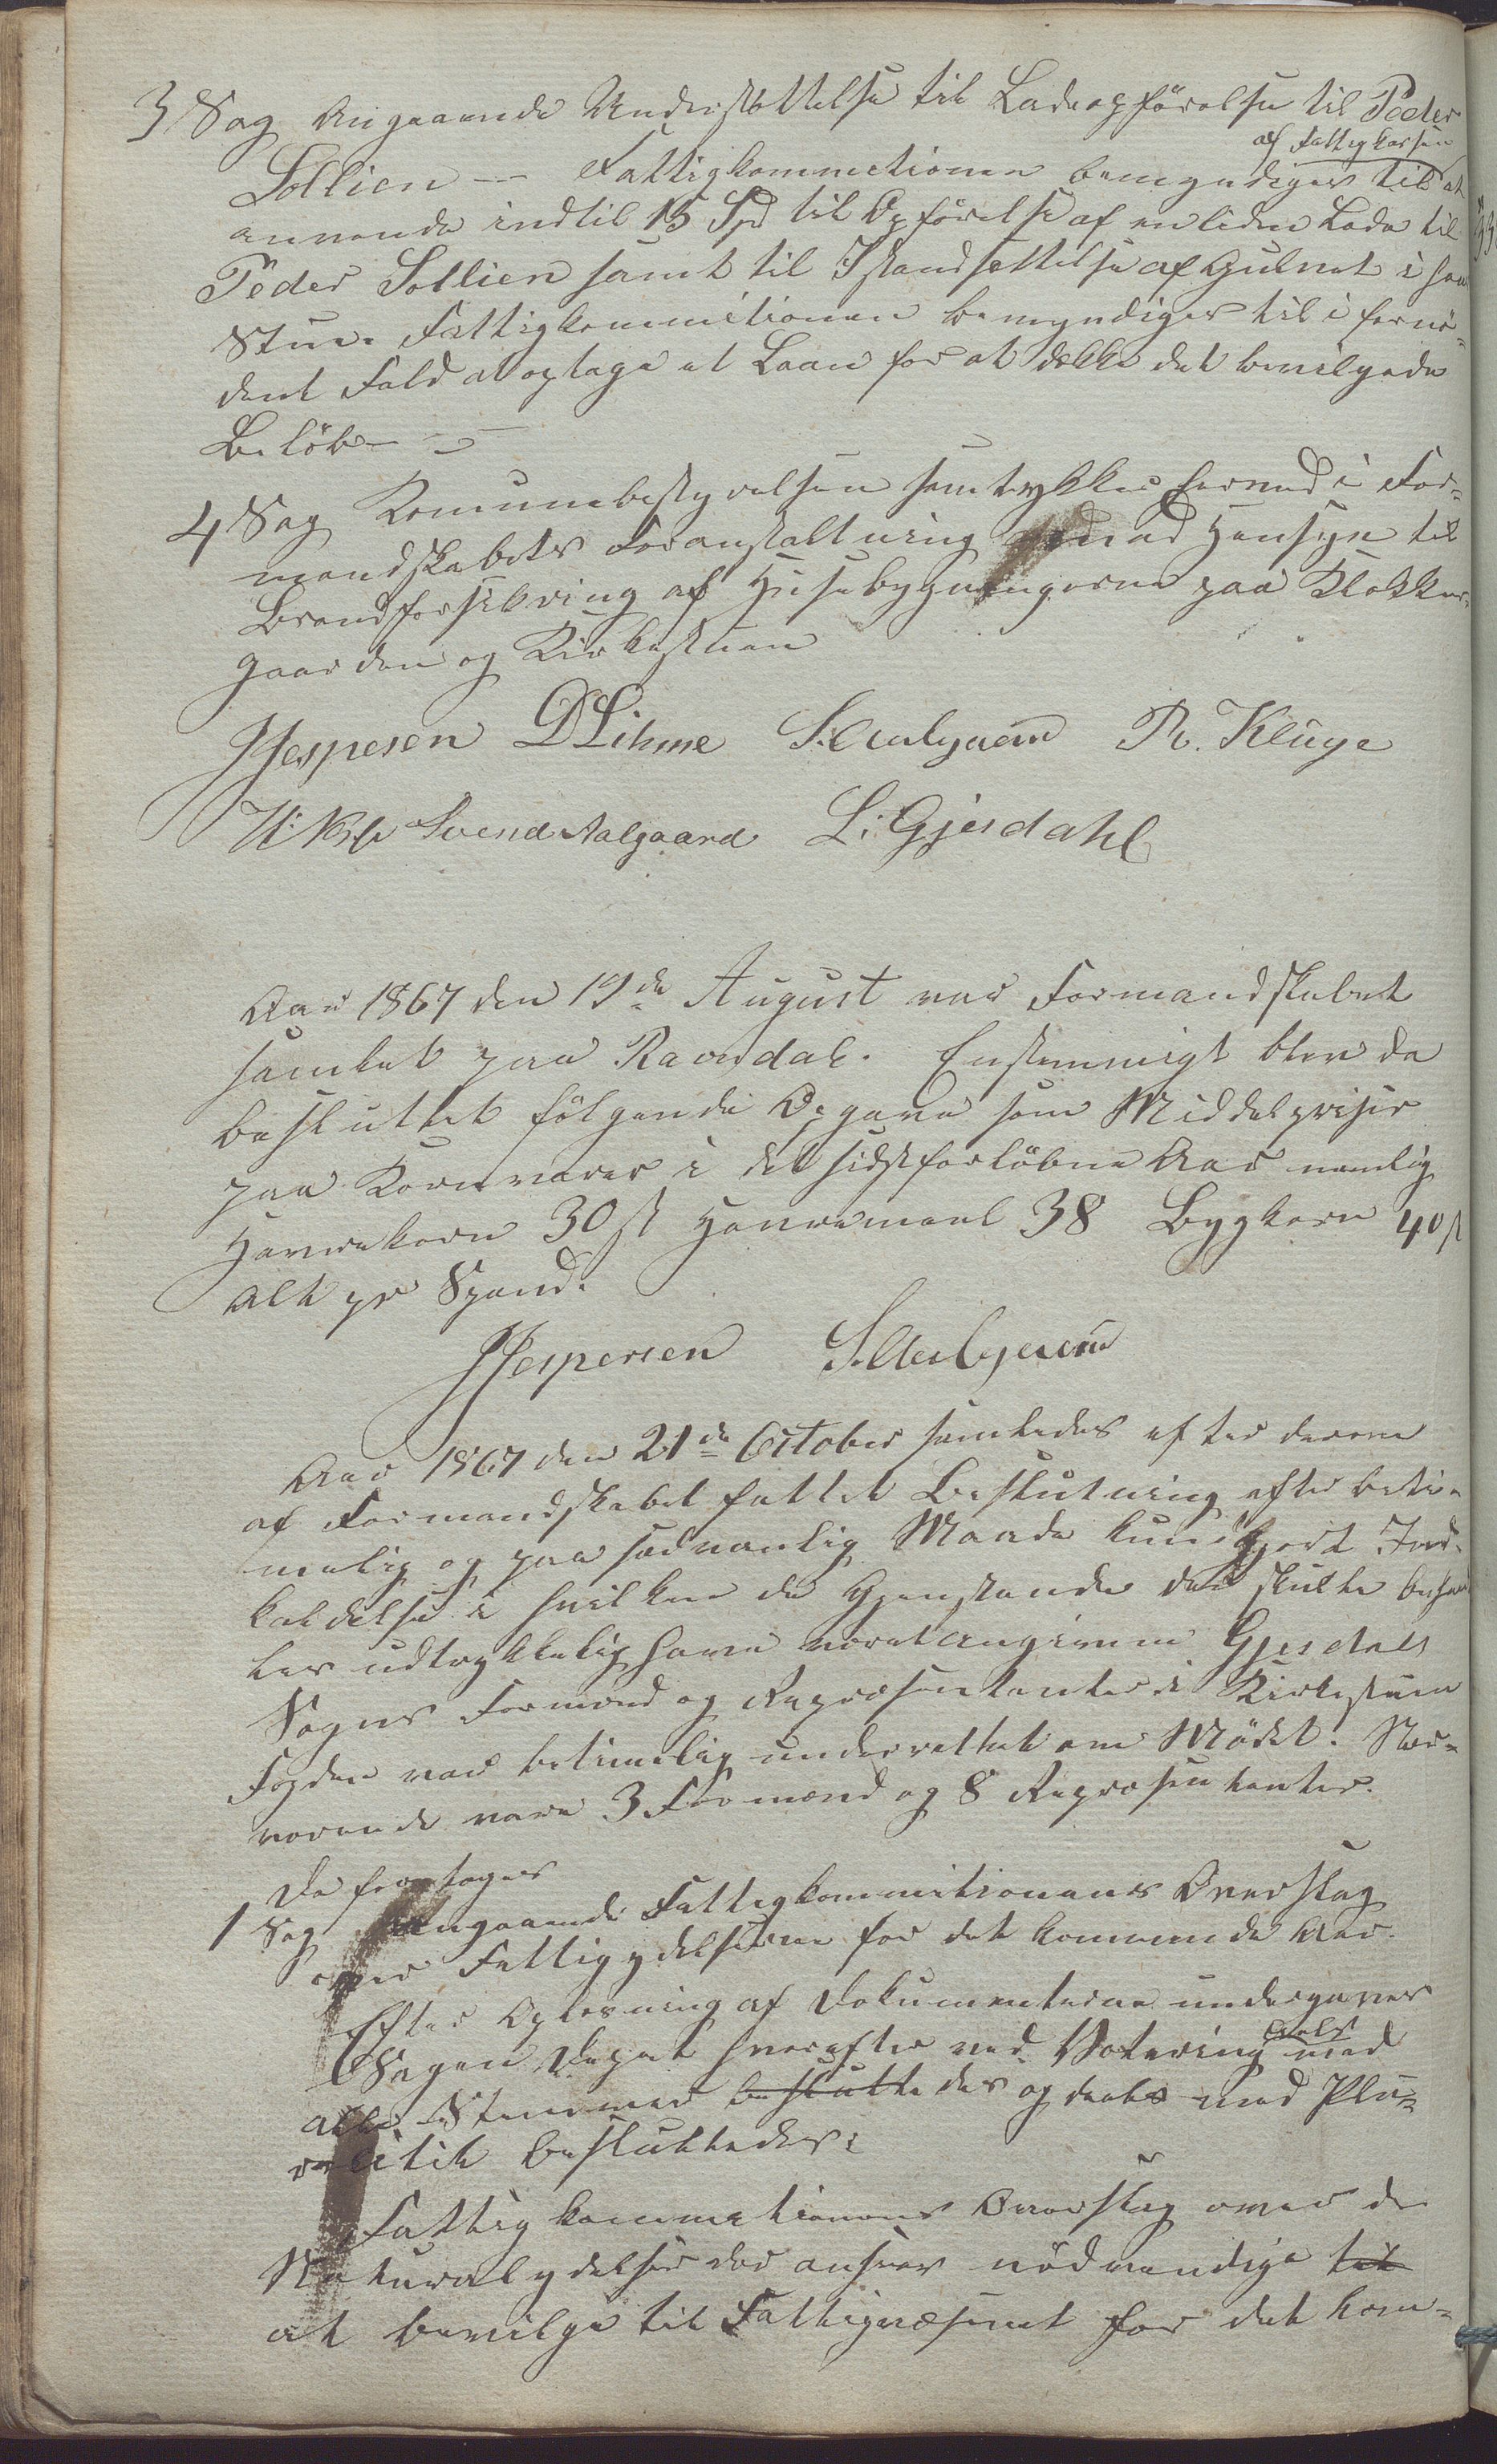 3 Sag Angaaende Understøttelse til Ladeopförelse til Peder
af Fattigkassen
Sollien — Fattigkommitionen bemyndiges til at
anvende indtil 15 Spd til Opförelse af en liden Lade til
Peder Sollien samt til Istandsættelse af Gulvet i hans
Stue. Fattigkommitionen bemyndiges til i fornö-
dent Fald at optage et Laan for at dække det bevilgede
Belöb —
4 Sag Kommunebestyrelsen samtykker herved i For-
mandskabets Foranstaltning med Hensyn til
Brandforsikring af Husebygningerne paa Klokker-
gaarden og Kirkestuen
JJespersen DLihme S. Aalgaard R. Kluge
Svend Aalgaard L. Gjesdahl
Aar 1867 den 19de August var Formandskabet
samlet paa Ravndal. Enstemmigt blev da
besluttet fölgende Opgave som Middelpriser
paa Kornvarer i det sidstforlöbne Aar nemlig
Havrekorn 30 s Havremeel 38 Bygkorn 40 s
alt pr Spand.
JJespersen S. Aalgaard
Aar 1867 den 21de October samledes efter derom
af Formandskabet fattet Beslutning efter beti-
melig og paa sædvanlig Maade kundgjort Ind-
kaldelse i hvilken de Gjenstande der skulle behand
les udtrykkelig have været angivne Gjesdals
Sogns Formænd og Repræsentanter i Kirkestuen
Fogden var betimelig underrettet om Mödet. Nær-
værende vare 3 Formænd og 8 Repræsentanter.
Da foretoges
1 Sag Angaaende Fattigkommitionens Overslag
over Fattigydelserne for det kommende Aar.
Efter Oplæsning af Dokumenterne undergaves
deels
Sagen Debat hvorefter ved Votering med
alle Stemmer besluttedes og deels med Plu-
ralitet besluttedes:
Fattigkommitionens Overslag over de
Naturalydelser der ansees nödvendige til
at bevilge til Fattigvæsenet for det kom-